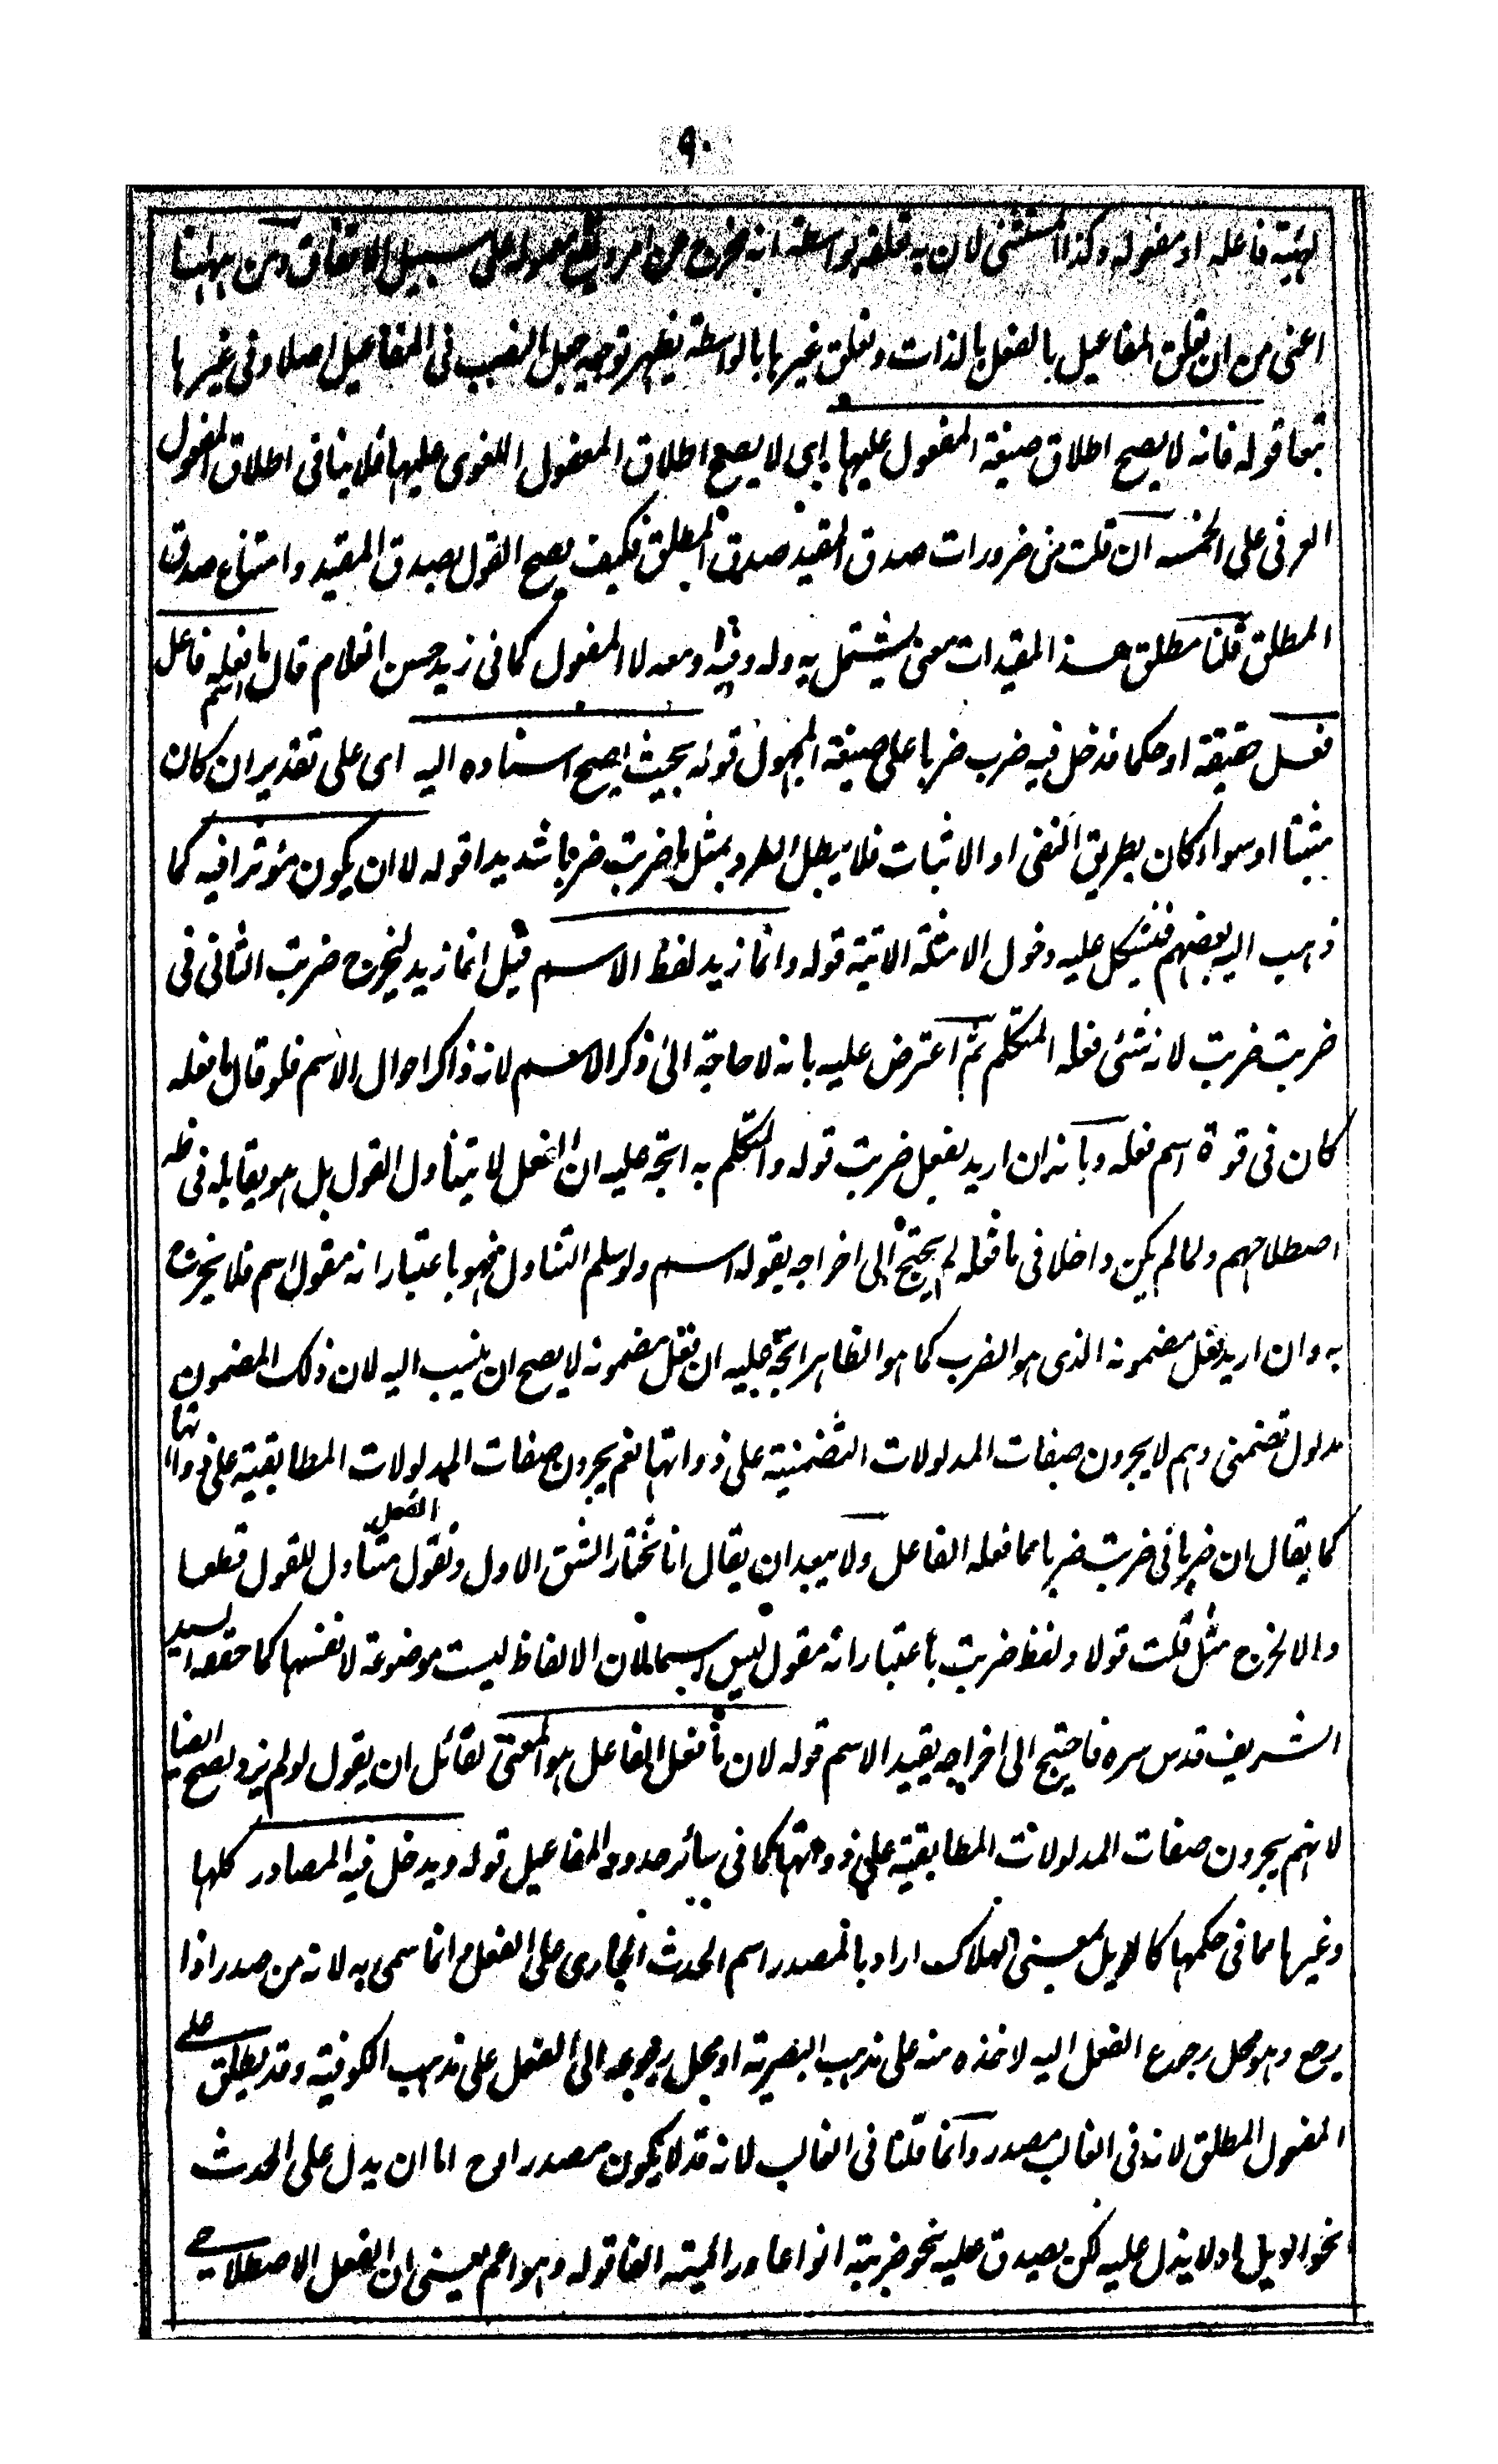 ٩٠
لهيئة فاعله او مفعوله وكذا المستثنى لان به تعلقه بواسطة انه مخرج من امر وقع معمولا على سبيل الاتفاق ومن ههنا
اعنى من ان تعلق المفاعيل بالفعل بالذات وتعلق غيرها بالواسطة يظهر توجيه جعل النصب فى المفاعيل اصلا وفى غيرها
تبعا قوله فانه لا يصح اطلاق صيغة المفعول عليها اى لا يصح اطلاق المفعول اللغوى عليها فلا ينافى اطلاق المفعول
العرفى على الخمسه ان قلت من ضرورات صدق المقيد صدق المطلق فكيف يصح القول بصدق المقيد وامتناع صدق
المطلق قلنا مطلق هذه المقيدات معنى يشتمل به وله وفيه ومعه لا المفعول كما فى زيد حسن الغلام قال ما فعله فاعل
فعل حقيقة او حكما فدخل فيه ضرب ضربا على صيغة المجهول قوله بحيث يصح اسناده اليه اى على تقدير ان كان
مثبتا او سواء كان بطريق النفى او الاثبات فلا يبطل الطرد بمثل ما ضربت ضربا شديدا قوله لا ان يكون مؤثرا فيه كما
ذهب اليه بعضهم فيشكل عليه دخول الامثلة الاتية قوله وانما زيد لفظ الاسم قيل انما زيد ليخرج ضربت الثانى فى
ضربت ضربت لانه شئى فعله المتكلم ثم اعترض عليه بانه لا حاجة الى ذكر الاسم لانه ذاكر احوال الاسم فلو قال ما فعله
كان فى قوة اسم فعله وبانه ان اريد بفعل ضربت قوله والتكلم به اتجه عليه ان الفعل لا يتناول القول بل هو يقابله فى
اصطلاحهم ولما لم يكن داخلا فى ما فعله لم يحتج الى اخراجه بقوله اسم ولو سلم التناول فهو باعتبار انه مقول اسم فلا يخرج
به وان اريد بفعل مضمونه الذى هو الضرب كما هو الظاهر اتجه عليه ان فعل مضمونه لا يصح ان ينسب اليه لان ذلك المضمون
مدلول تضمنى وهم لا يجرون صفات المدلولات التضمنية على ذواتها نعم يجرون صفات المدلولات المطابقية على ذواتها
كما يقال ان ضربا فى ضربت ضربا مما فعله الفاعل ولا يبعد ان يقال انا نختار الشق الاول ونقول الفعل متناول للقول قطعا
والا لخرج مثل قلت قولا ولفظ ضربت باعتبار انه مقول ليس اسما لان الالفاظ ليست موضوعة لانفسها كما حققه السيد
الشريف قدس سره فاحتيج الى اخراجه بقيد الاسم قوله لان ما فعل الفاعل هو المعنى لقائل ان يقول لو لم يزد لصح ايضا
لانهم يجرون صفات المدلولات المطابقية على ذواتها كما فى سائر حدود المفاعيل قوله ويدخل فيه المصادر كلها
وغيرها مما فى حكمها كالويل بمعنى الهلاك اراد بالمصدر اسم الحدث الجارى على الفعل وانما سمى به لانه من صدر اذا
رجع وهو محل رجوع الفعل اليه لاخذه منه على مذهب البصرية او محل رجوعه الى الفعل على مذهب الكوفية وقد يطلق على
المفعول المطلق لانه فى الغالب مصدر وانما قلنا فى الغالب لانه قد لا يكون مصدرا وح اما ان يدل على الحدث
نحو الويل او لا يدل عليه لكن يصدق عليه نحو ضربته انواعا قوله وهو اعم يعنى ان الفعل الاصطلاحى